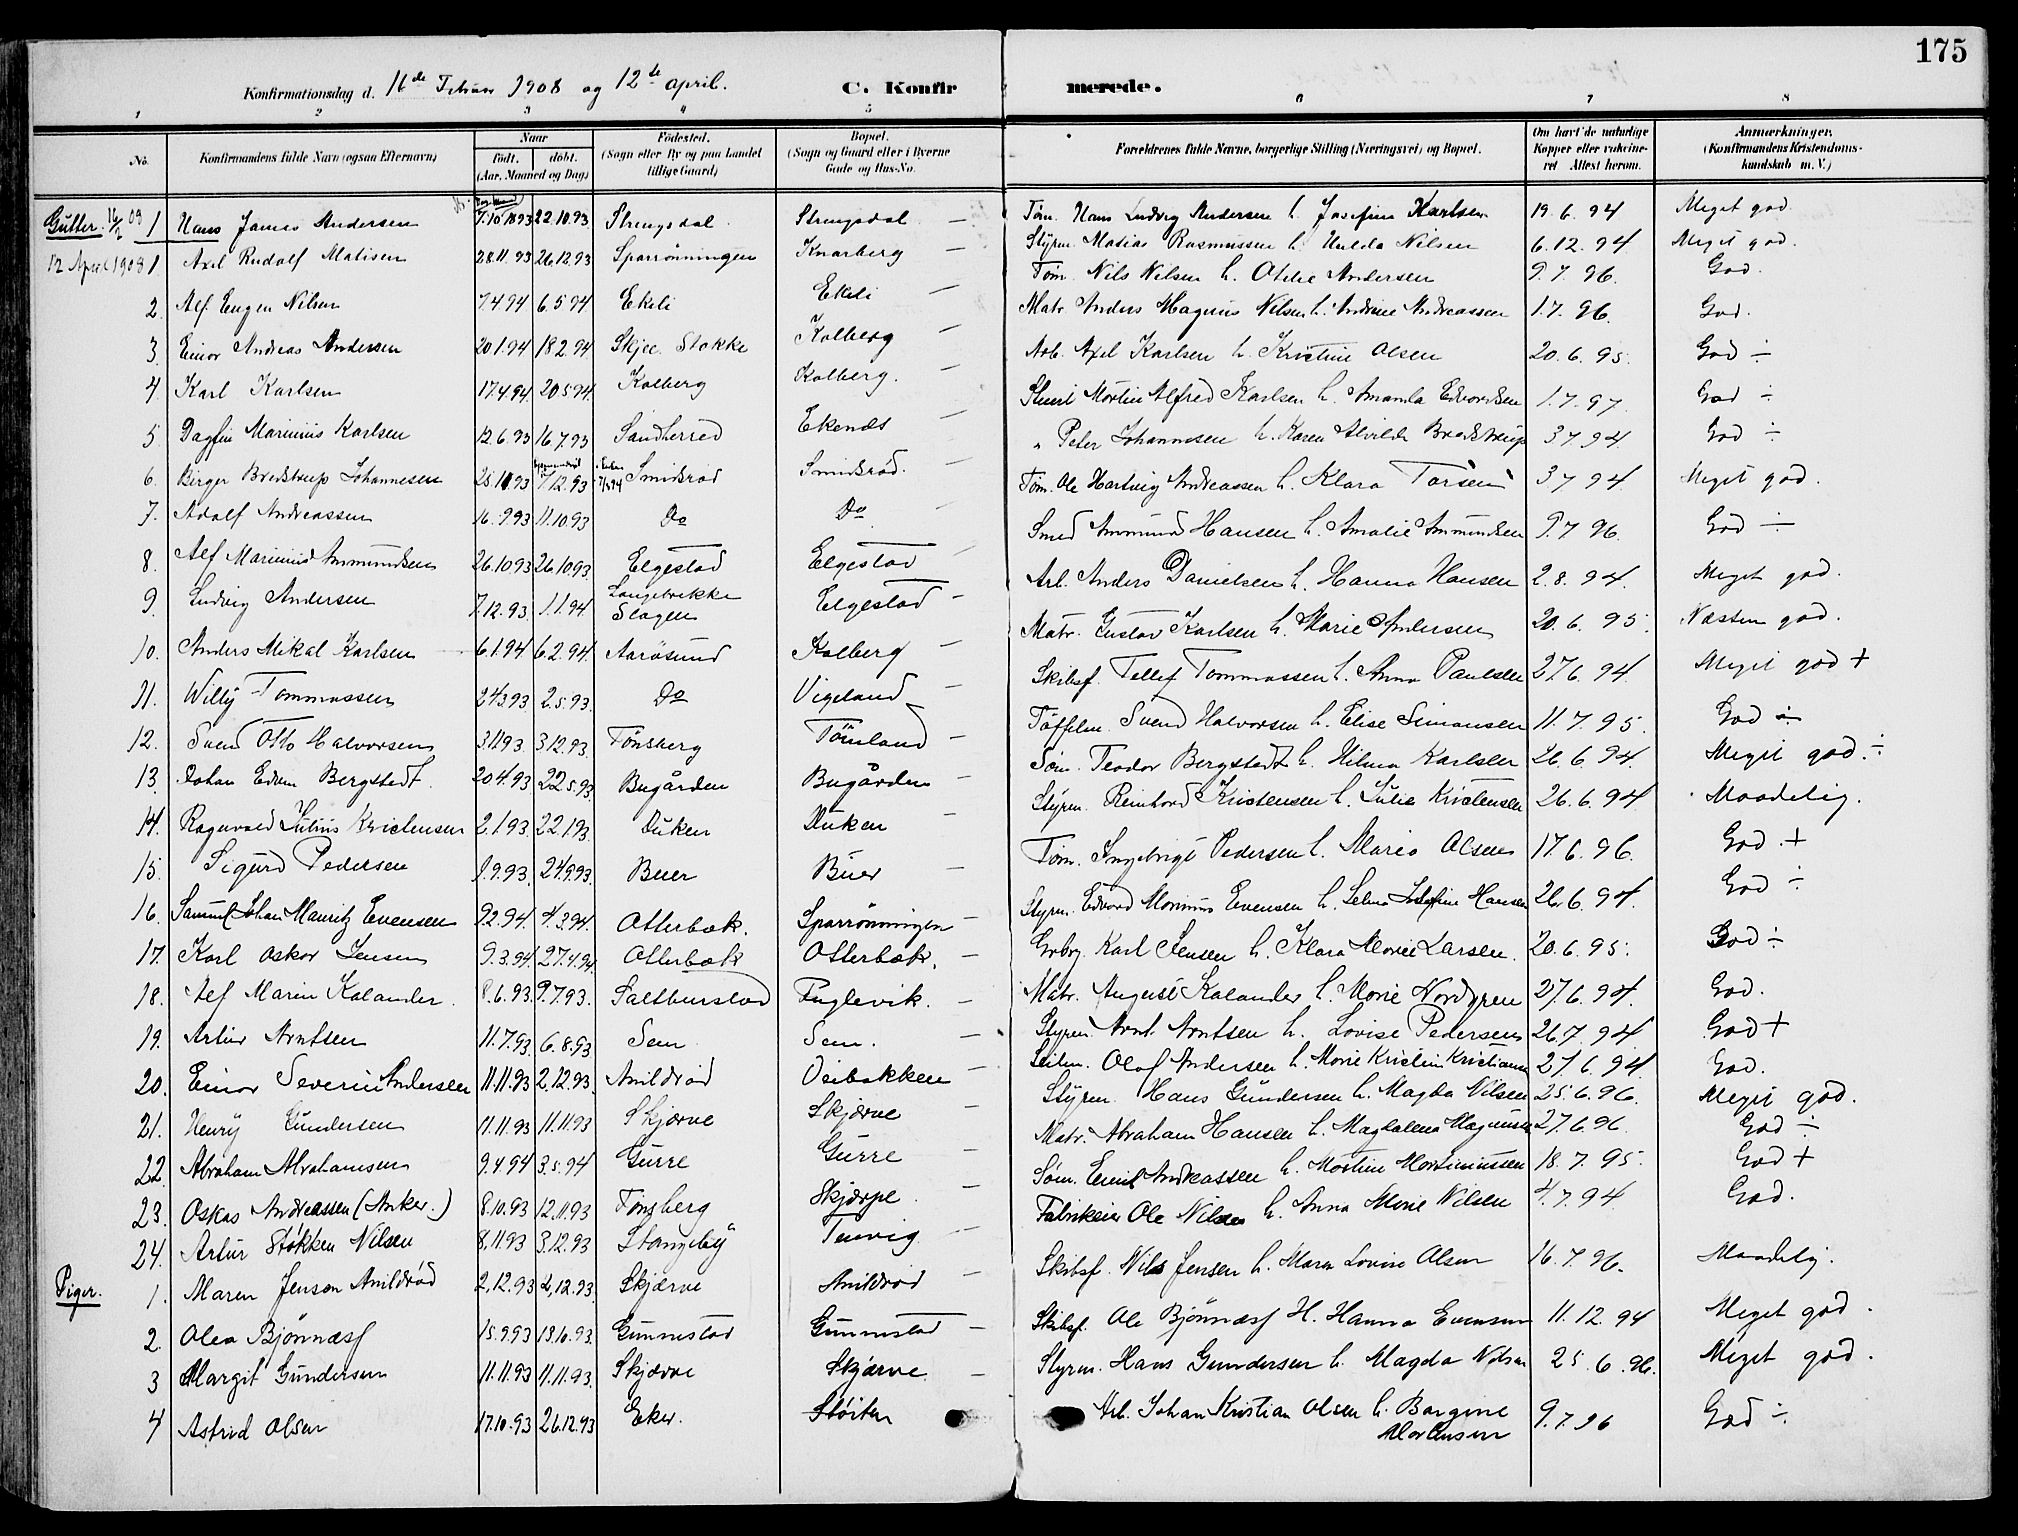 175
Konfirmationsdag d. 16de Februar 1908 og 12te april. C. Konfirmerede.
1 2 3 4 5 6 7 8
No. Konfirmandens fulde Navn (ogsaa Efternavn) Naar født. døbt. (Aar, Maaned og Dag) Fødested. (Sogn eller By og paa Landet tillige Gaard) Bopæl. (Sogn og Gaard eller i Byerne Gade og Hus-No. Forældrenes fulde Navne, borgerlige Stilling (Næringsvei) og Bopæl. Om havt de naturlige Kopper eller vakcineret Attest herom. Anmærkninger. (Konfirmandens Kristendomskundskab m. V.)
Gutter. 16/2 09 1 Hans James Andersen 7.10 1893 22.10.93 Strengsdal Strengsdal Tøm. Hans Ludvig Andersen h. Josefine Karlsen 19.6.94 Meget god
12 April 1908 1 Axel Rudolf Matisen 28.11.93 26.12.93 Sparrønningen Knarberg Styrm. Matias Rasmussen h. Hulda Nilsen 6.12.94 Meget god.
2. Alf Eugen Nilsen 7.4.94 6.5.94 Ekeli Ekeli Tøm. Nils Nilsen h. Otilie Andersen 9.7.96. God.
3. Einar Andreas Andersen 20.1.94 18.2.94 Skjee Stokke Kolberg Matr. Anders Magnus Nilsen h. Andrine Andreassen 1.7.96. God.
4. Karl Karlsen 17.4.94. 20.5.94. Kolberg Kolberg. Arb. Axel Karlsen h. Kristine Olsen 20.6.95. God ÷
5 Dagfin Marinius Karlsen 12.6.93 16.7.93 Sandherred Ekenes Martin Alfred Karlsen h. Amanda Edvardsen 1.7.97. God ÷
6. Birger Bredstrup Johannesen 25.11.93 7/12.93 Smidsrød Smidsrød. „ Peter Johannesen h. Karen Alvilde Bredstrup 3.7.94. God ÷
7. Adolf Andreassen 16.9.93 11.10.93 Do Do Tøm. Ole Hartvig Andreassen h. Klara Torsen 3.7.94. Meget god.
8. Alf Marinius Ammundsen 26.10.93 26.10.93. Elgestad Elgestad Smed Ammund Hansen h. Amalie Ammundsen 9.7.96. God ÷
9. Ludvig Andersen 7.12.93 1.1.94 Slagen Elgestad Arb. Anders Danielsen h. Hanna Hansen 2.8.94. Meget god.
10. Anders Mikal Karlsen 6.1.94 6.2.94. Aarøsund Kolberg Matr. Gustav Karlsen h. Marie Andersen 20.6.95. Næsten god.
11. Willy Tommassen 24.3.93. 2.5.93. Do Vigeland Skibsf. Tellef Tommassen h. Anna Paulsen 27.6.94. Meget god +
12. Svend Otto Halvorsen 3.12.93. Tønsberg Tømland Svend Halvorsen h. Elise Simonsen 11.7.95. God ÷
13. Johan Edvin Bergstedt. 20.4.93 22.5.93 Bugården Bugården Søm. Teodor Bergstedt h. Hilma Karlsen 26.6.94. Meget god ÷
14. Ragnvald Julius Kristensen 2.1.93. 22.1.93. Duken Duken Styrm. Reinhard Kristensen h. Julie Kristensen 26.6.94 Maadelig.
15. Sigurd Pedersen 1.9.93. 24.9.93. Buer Buer Tøm. Ingebrigt Pedersen h. Maria Olsen 17.6.96. God +
16. Samuel Johan Mauritz Evensen 9.2.94. 4.3.94. Otterbæk. Sparrønningen Styrm. Edvard Marinius Evensen h. Selma Josefine Hansen 26.6.94. God ÷
17. Karl Oskar Jensen 9.3.94. 27.4.94 Otterbæk Otterbæk. Karl Jensen h. Klara Marie Larsen. 20.6.95. God ÷
18. Alf Marin Kalander. 8.6.93. 9.7.93. Saltburstad Fuglevik. Matr. August Kalander h. Marie Nordgren 27.6.94. God.
19. Artur Arntsen 11.7.93. 6.8.93 Sem Sem. Styrm. Arnt Arntsen h. Lovise Pedersen 26.7.94 God +
20. Einar Severin Andersen 11.11.93 2.12.93. Anildrød Veibakken Olaf Andersen h. Marie Kristin Kristiansen 27.6.94 God.
21. Henry Gundersen 11.11.93 11.11.93 Skjærve Skjærve Styrm. Hans Gundersen h. Magda Nilsen 25.6.96. Meget god.
22. Abraham Abrahamsen 9.4.94 3.5.94 Gurre Gurre Matr. Abraham Hansen h. Magdalena Magnussen 27.6.96. God ÷
23. Oskar Andreassen (Anker.) 8.10.93 12.11.93 Tønsberg Skjærpe. Søm. Emil Andreassen h. Martine Martiniussen 18.7.95. God +
24. Artur Støkken Nilsen 8.11.93 3.12.93 Stangeby Tenvig Fabrikeier Ole Nilsen h. Anna Marie Nilsen 4.7.94. God.
Piger. 1. Maren Jenson Anildrød 2.12.93 2.12.93. Skjærve Anildrød Skibsf. Nils Jensen h. Maren Lovise Olsen 16.7.96. Maadelig.
2. Olea Bjønnæss 15.9.93 13.10.93. Gunnestad Gunnestad Skibsf. Ole Bjønnæss H. Hanna Evensen 11.12.94 Meget god.
3 Margit Gundersen 11.11.93 11.11.93. Skjærve Skjærve Styrm. Hans Gundersen h. Magda Nilsen 25.6.96. Meget god.
4 Astrid Olsen 17.10.93 26.12.93 Eker. Støiten Arb. Johan Kristian Olsen h. Borgine Mortensen 9.7.96 God ÷